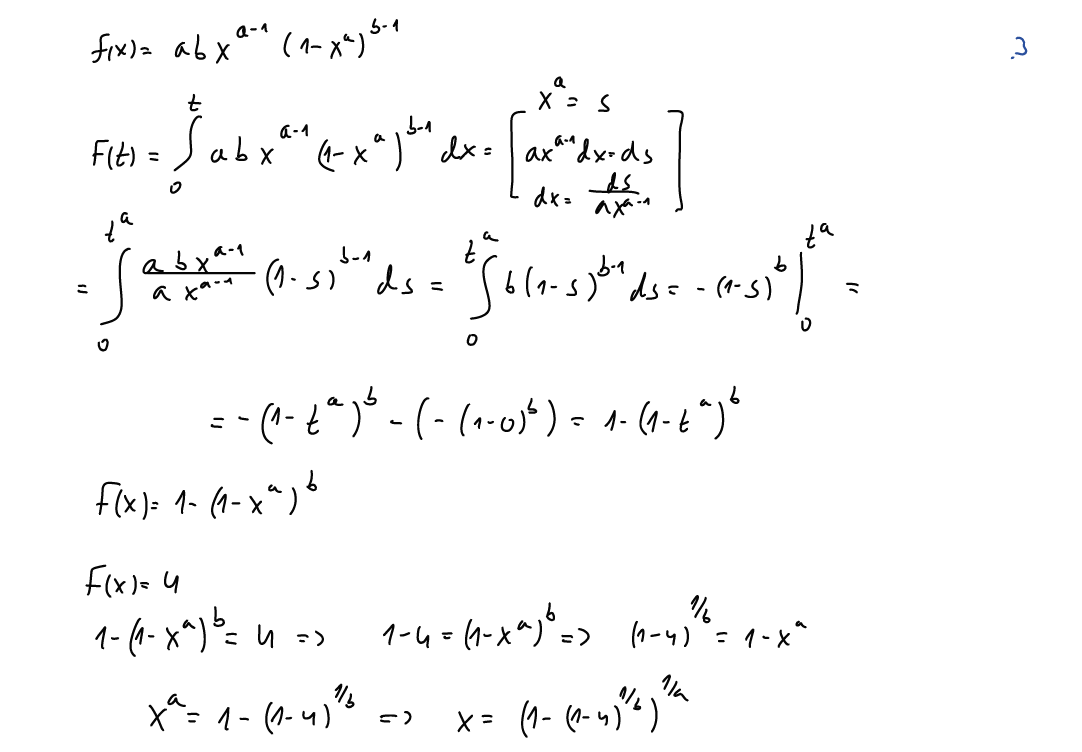 f(x)= a b x^{a-1} (1-x^a)^{b-1}
3
F(t) = ∫_0^t a b x^{a-1} (1-x^a)^{b-1} dx = [ x^a = s
ax^{a-1}dx=ds
dx= ds/(ax^{a-1}) ]
= ∫_0^{t^a} (a b x^{a-1})/(a x^{a-1}) (1-s)^{b-1} ds = ∫_0^{t^a} b(1-s)^{b-1} ds = -(1-s)^b |_0^{t^a} =
= -(1-t^a)^b - (-(1-0)^b) = 1-(1-t^a)^b
F(x)= 1-(1-x^a)^b
F(x)= u
1-(1-x^a)^b = u => 1-u = (1-x^a)^b => (1-u)^{1/b} = 1-x^a
x^a = 1-(1-u)^{1/b} => x = (1-(1-u)^{1/b})^{1/a}